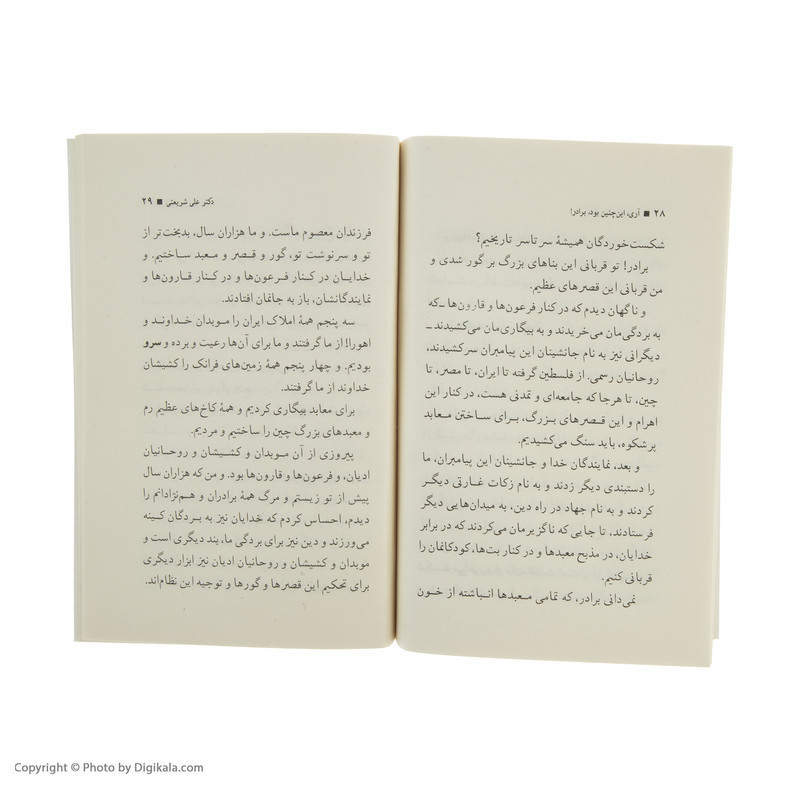 ۲۸ ■ آری، این‌چنین بود، برادر!
شکست‌خوردگان همیشهٔ سرتاسر تاریخیم؟
برادر! تو قربانی این بناهای بزرگ بر گور شدی و
من قربانی این قصرهای عظیم.
و ناگهان دیدم که در کنار فرعون‌ها و قارون‌ها ـ که
به بردگی‌مان می‌خریدند و به بیگاری‌مان می‌کشیدند ـ
دیگرانی نیز به نام جانشینان این پیامبران سرکشیدند،
روحانیان رسمی. از فلسطین گرفته تا ایران، تا مصر، تا
چین، تا هرجا که جامعه‌ای و تمدنی هست، در کنار این
اهرام و این قصرهای بزرگ، برای ساختن معابد
پرشکوه، باید سنگ می‌کشیدیم.
و بعد، نمایندگان خدا و جانشینان این پیامبران، ما
را دستبندی دیگر زدند و به نام زکات غارتی دیگر
کردند و به نام جهاد در راه دین، به میدان‌هایی دیگر
فرستادند، تا جایی که ناگزیرمان می‌کردند که در برابر
خدایان، در مذبح معبدها و در کنار بت‌ها، کودکانمان را
قربانی کنیم.
نمی‌دانی برادر، که تمامی معبدها انباشته از خون
دکتر علی شریعتی ■ ۲۹
فرزندان معصوم ماست. و ما هزاران سال، بدبخت‌تر از
تو و سرنوشت تو، گور و قصر و معبد ساختیم. و
خدایان در کنار فرعون‌ها و در کنار قارون‌ها و
نمایندگانشان، باز به جانمان افتادند.
سه پنجم همهٔ املاک ایران را موبدان خداوند و
اهورا! از ما گرفتند و ما برای آن‌ها رعیت و برده و سرو
بودیم. و چهار پنجم همهٔ زمین‌های فرانک را کشیشان
خداوند از ما گرفتند.
برای معابد بیگاری کردیم و همهٔ کاخ‌های عظیم رم
و معبدهای بزرگ چین را ساختیم و مردیم.
پیروزی از آن موبدان و کشیشان و روحانیان
ادیان، و فرعون‌ها و قارون‌ها بود. و من که هزاران سال
پیش از تو زیستم و مرگ همهٔ برادران و هم‌نژادانم را
دیدم، احساس کردم که خدایان نیز به بردگان کینه
می‌ورزند و دین نیز برای بردگی ما، بند دیگری است و
موبدان و کشیشان و روحانیان ادیان نیز ابزار دیگری
برای تحکیم این قصرها و گورها و توجیه این نظام‌اند.
Copyright © Photo by Digikala.com